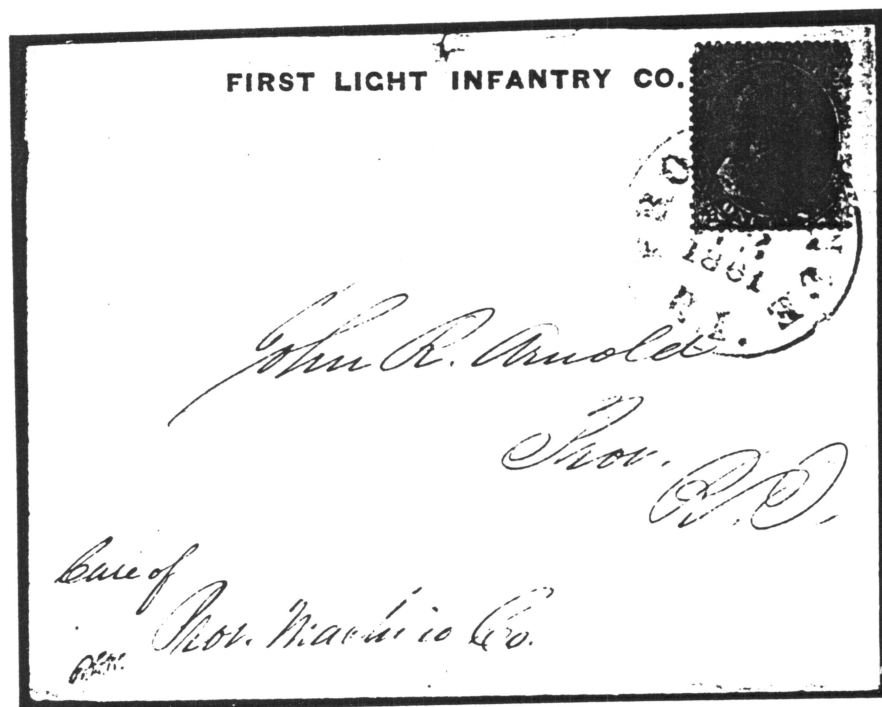 FIRST LIGHT INFANTRY CO.
1861
R.I.
John R. Arnold
Prov.
R.I.
Care of
Prov. Machine Co.